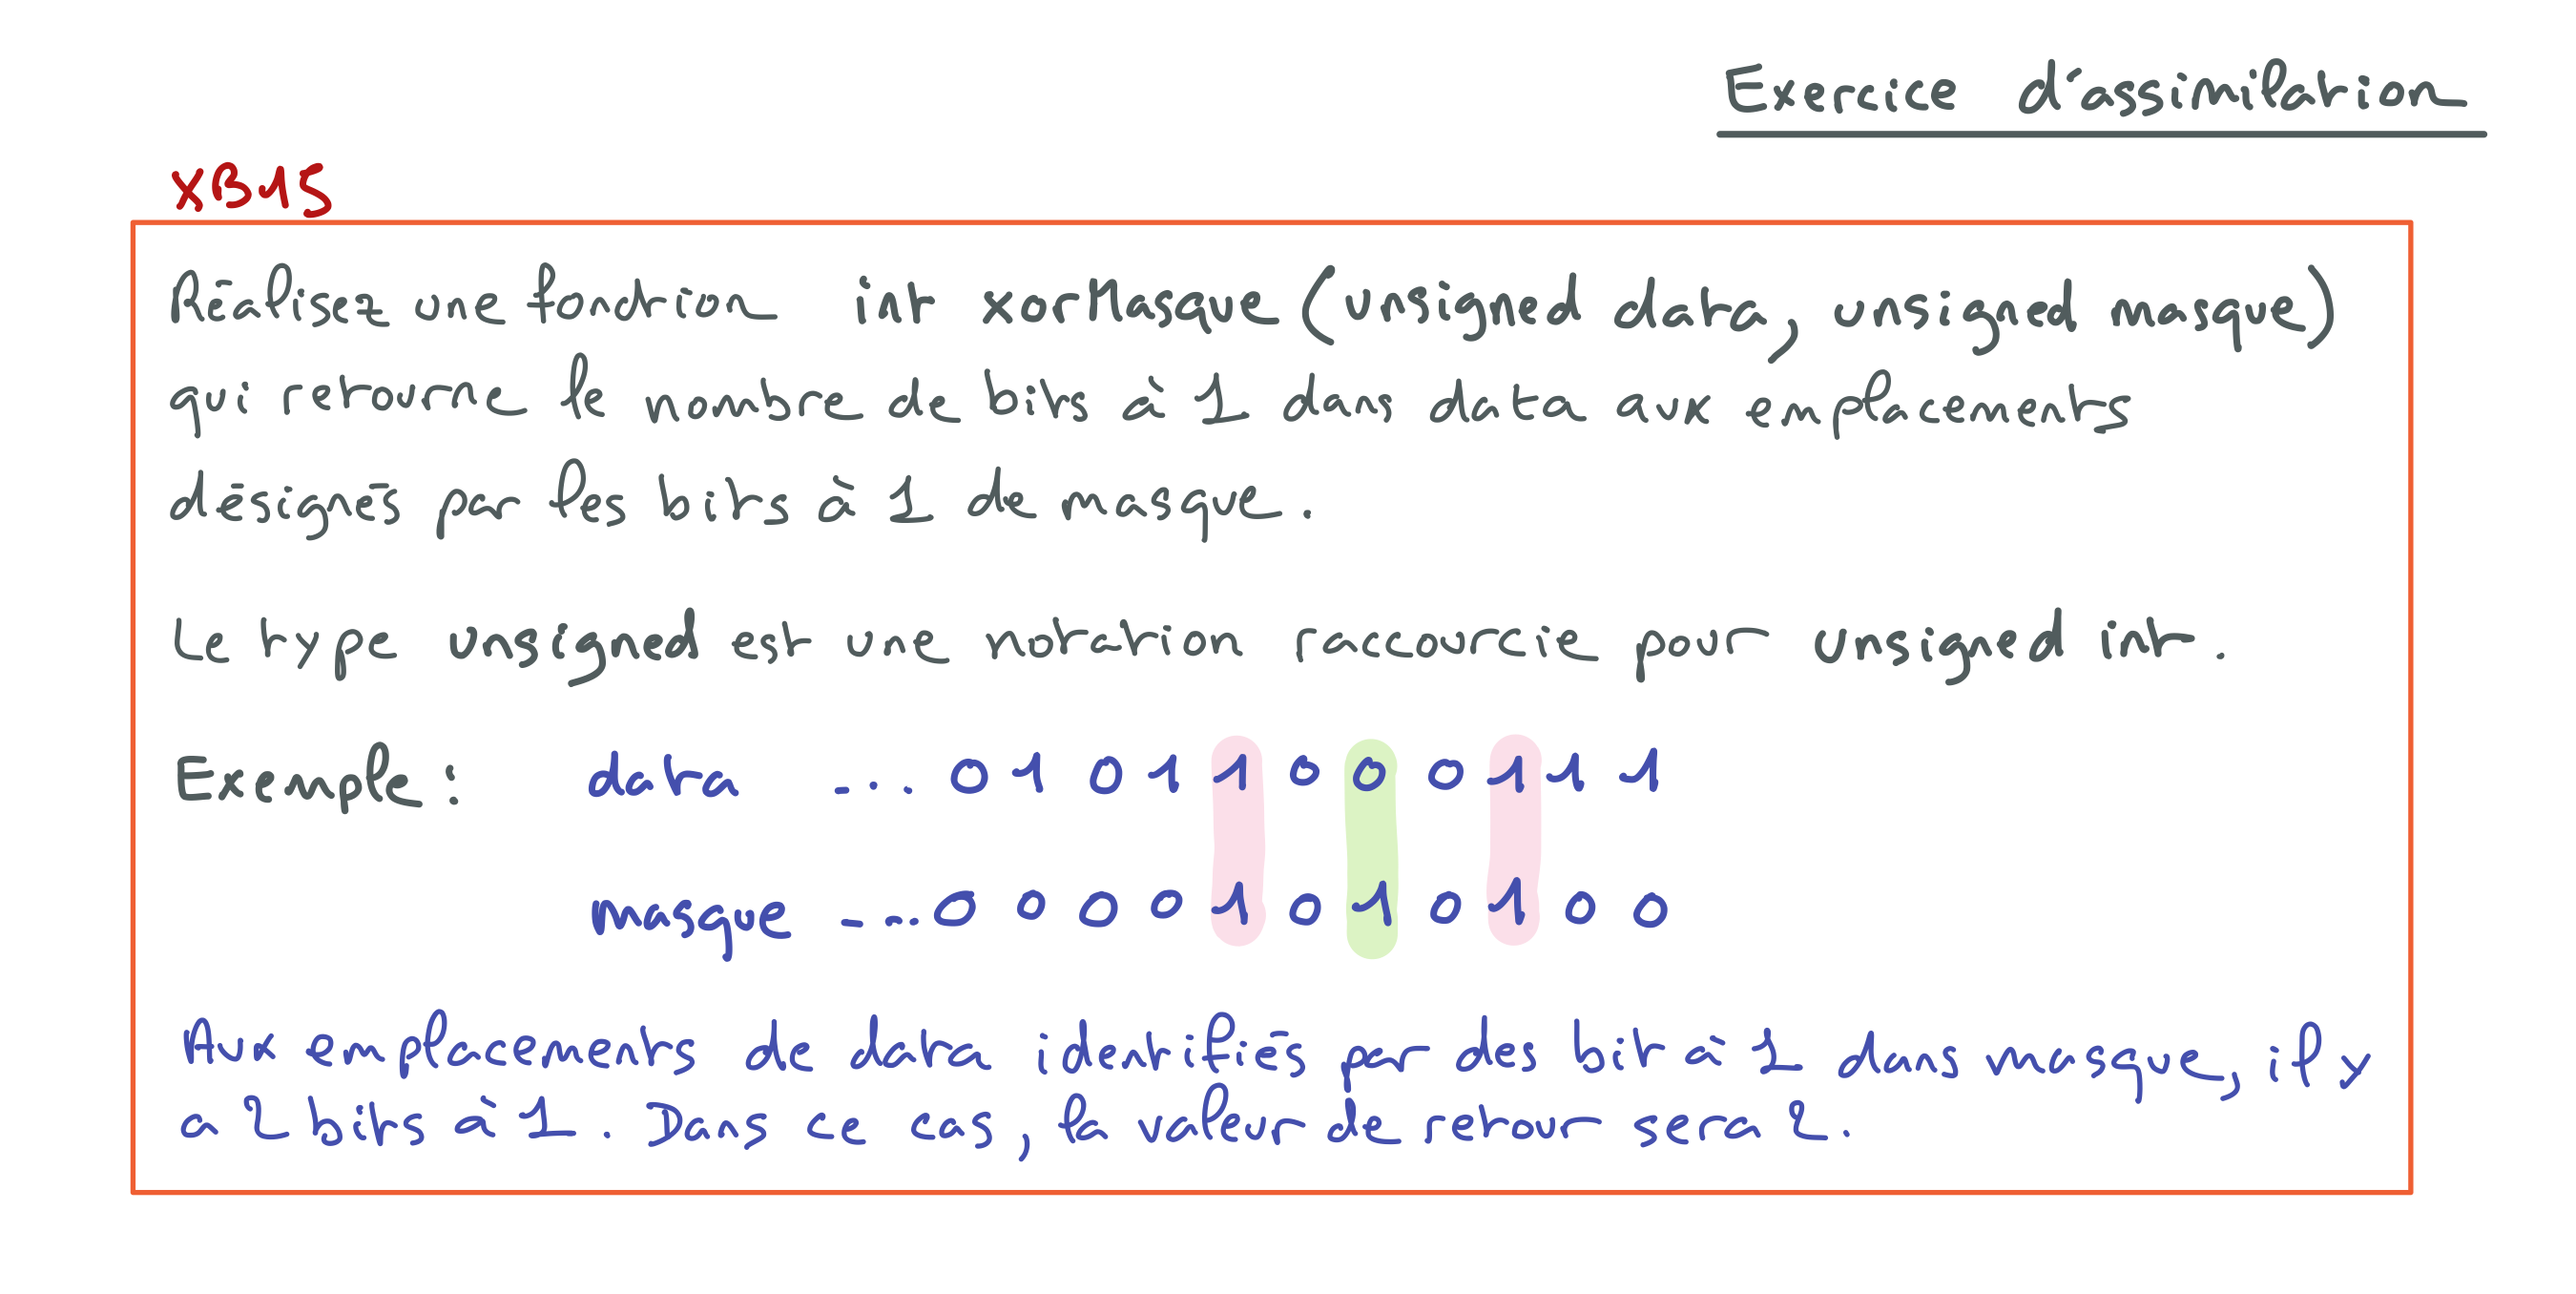 Exercice d'assimilation
XB15
Réalisez une fonction int xorMasque (unsigned data, unsigned masque)
qui retourne le nombre de bits à 1 dans data aux emplacements
désignés par les bits à 1 de masque.
Le type unsigned est une notation raccourcie pour unsigned int.
Exemple : data ... 0 1 0 1 1 0 0 0 1 1 1
masque ... 0 0 0 0 1 0 1 0 1 0 0
Aux emplacements de data identifiés par des bit à 1 dans masque, il y
a 2 bits à 1. Dans ce cas, la valeur de retour sera 2.